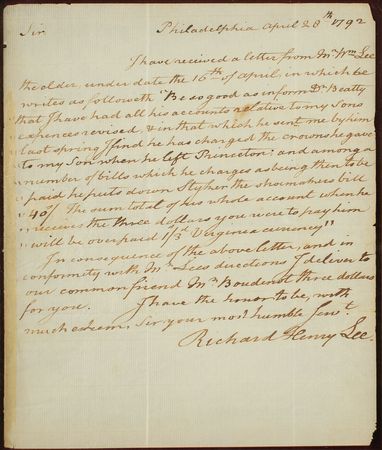 Philadelphia April 28th 1792
Sir
I have received a letter from Mr. Wm Lee
the elder, under date the 16th of April, in which he
writes as followeth "Be so good as inform Dr Beatty
that I have had all his accounts relative to my Sons
expences revised, & in that which he sent me by him
last spring I find he has charged the crowns he gave
to my Son when he left Princeton: and among a
number of bills which he charges as being then to be
paid he puts down Styher the shoemakers bill
" 40/. The sum total of his whole account when he
receives the three dollars you were to pay him
" will be overpaid 1/3d Virginia currency"
In consequence of the above letter, and in
conformity with Mr Lees directions I deliver to
our common friend Mr Boudinot three dollars
for you. I have the honor to be, with
much esteem, Sir your most humble Servt.
Richard Henry Lee.